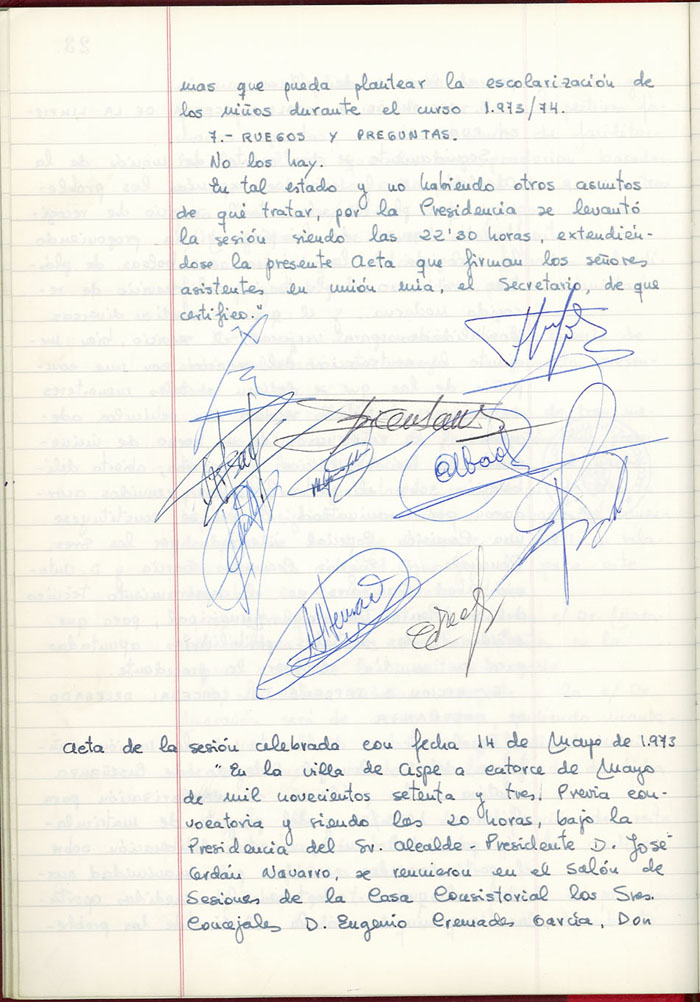 mas que pueda plantear la escolarización de
los niños durante el curso 1.973/74.
7.- RUEGOS Y PREGUNTAS.
No los hay.
En tal estado y no habiendo otros asuntos
de qué tratar, por la Presidencia se levantó
la sesión siendo las 22'30 horas, extendién-
dose la presente Acta que firman los señores
asistentes en unión mia, el Secretario, de que
certifico."
Acta de la sesión celebrada con fecha 14 de Mayo de 1.973
"En la villa de Aspe a catorce de Mayo
de mil novecientos setenta y tres. Previa con-
vocatoria y siendo las 20 horas, bajo la
Presidencia del Sr. Alcalde-Presidente D. José
Cerdán Navarro, se reunieron en el Salón de
Sesiones de la Casa Consistorial los Sres.
Concejales D. Eugenio Cremades García, Don